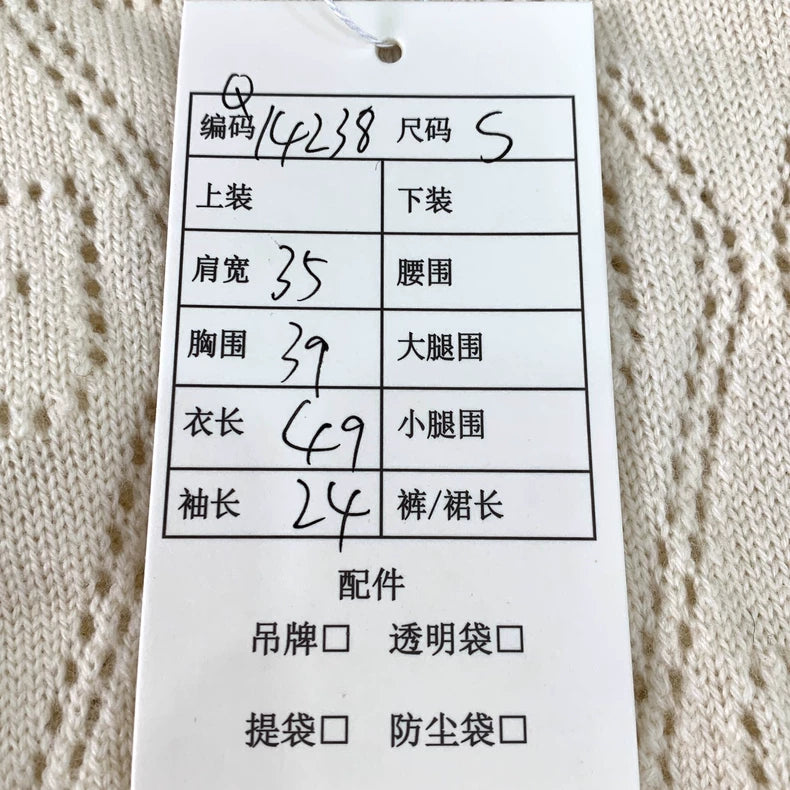 Q
编码 14238 尺码 S
上装 下装
肩宽 35 腰围
胸围 39 大腿围
衣长 49 小腿围
袖长 24 裤/裙长
配件
吊牌□ 透明袋□
提袋□ 防尘袋□